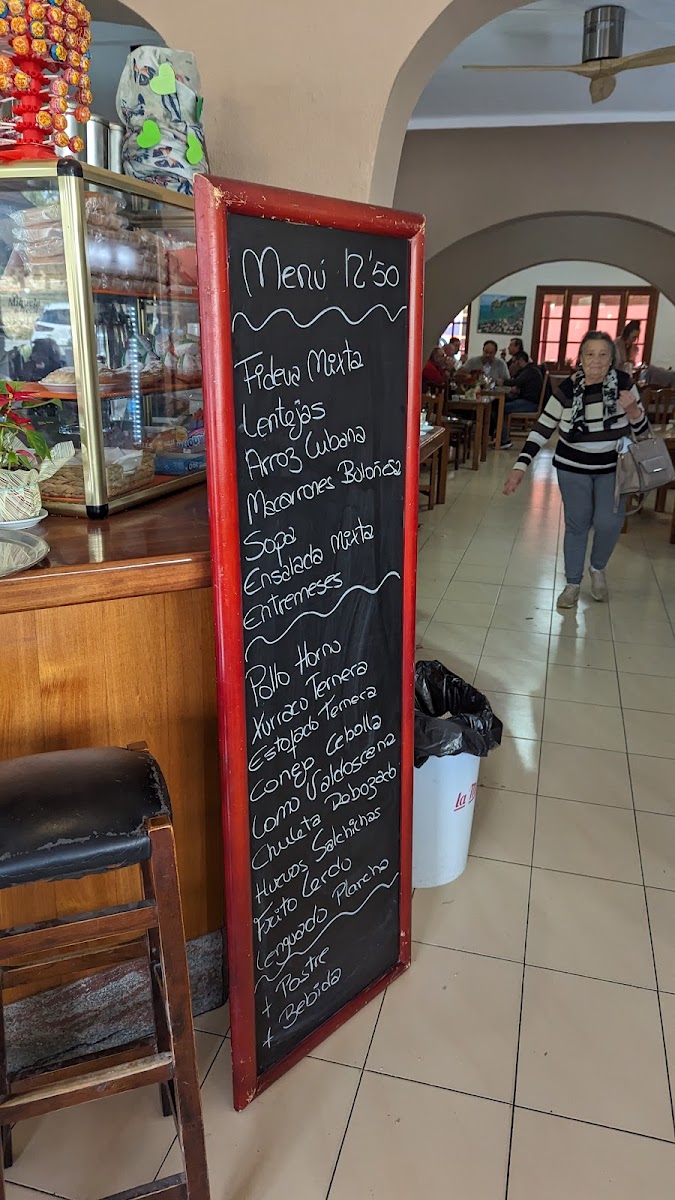 Menú 12'50
Fideua Mixta
Lentejas
Arroz Cubana
Macarrones Boloñesa
Sopa
Ensalada Mixta
Entremeses
Pollo Horno
Xurraco Ternera
Estofado Ternera
Conejo Cebolla
Lomo Valdoscena
Chuleta Rebozado
Huevos Salchichas
Frito Cerdo
Lenguado Plancha
+ Postre
+ Bebida
Miquela
la